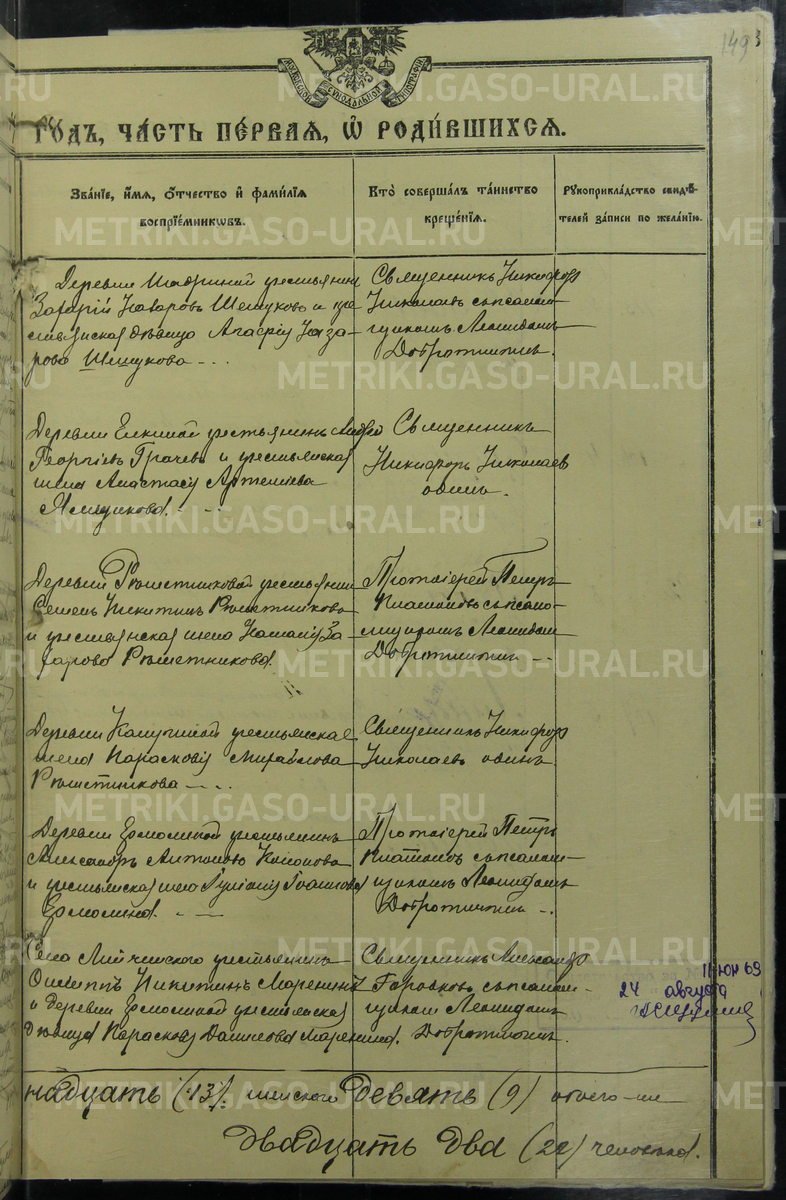 149
МОСКОВСКОЙ СѴНОДАЛЬНОЙ ТИПОГРАФІИ
ГОДЪ, ЧАСТЬ ПЕРВАЯ, Ѡ РОДИ́ВШИХСЯ.
Зва́нїе, и́мя, ѻ҆́тчество и҆ фами́лїя воспрїе́мникѡвъ.
Кто̀ соверша́лъ та́инство креще́нїя.
Рꙋкоприкла́дство свидѣ́телей за́писи по жела́нїю.
Деревни крестьянин
Захарій Назаровъ и кре-
стьянская дѣвица Наза-
рова
Священникъ Никифор
Николаевъ съ псалом-
щикомъ Леонидомъ
Добротинымъ.
Деревни Елкиной крестьянинъ Андрей
Георгіевъ Грачевъ и крестьянская
жена Анастасія Артеміева
Ямщикова.
Священникъ
Никифоръ Николаев
одинъ.
Деревни Рѣшетниковой крестьянин
Семенъ Никитинъ Рѣшетниковъ
и крестьянская жена Наталія За-
харова Рѣшетникова.
Протоіерей Петръ
Платоновъ съ псалом-
щикомъ Леонидом
Добротинымъ
Деревни крестьянская
жена Парасковія Михайлова
Рѣшетникова
Священникъ Никифор
Николаевъ одинъ.
Деревни Ермолиной крестьянинъ
Александръ Антоновъ Кононовъ
и крестьянская жена Іуліанія
Ермолина.
Протоіерей Петръ
Платоновъ съ псалом-
щикомъ Леонидомъ
Добротинымъ
Села крестьянинъ
Осиппъ Никитинъ Маренинъ
и деревни Ермолиной крестьянская
дѣвица Параскова Данилова Маренина.
Священникъ Александр
съ псалом-
щиком Леонидомъ
Добротинымъ.
11 юн 69
24 августа
надцать (13), женского девять (9) обоего-же
двадцать два (22) человека.
METRIKI.GASO-URAL.RU